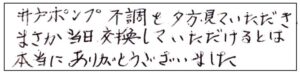 井戸ポンプ不調を夕方見ていただき
まさか当日交換していただけるとは
本当にありがとうございました